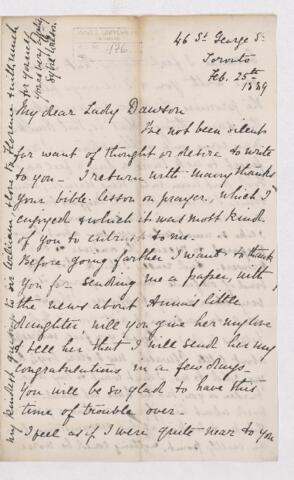 46 St. George St.
Toronto
Feb. 25th
1889
My dear Lady Dawson
I've not been silent
for want of thought or desire to write
to you - I return with many thanks
your bible-lesson on prayer, which I
enjoyed & which it was most kind
of you to entrust to me.
Before going farther I want to thank
you for sending me a paper, with
the news about Anna's little
daughter, will you give her my love
& tell her that I will send her my
congratulations in a few days -
You will be so glad to have this
time of trouble over -
I feel as if I were quite near to you
my kindest regards to Sir William, & love to Florence & with much
for yourself
Yours very
176.